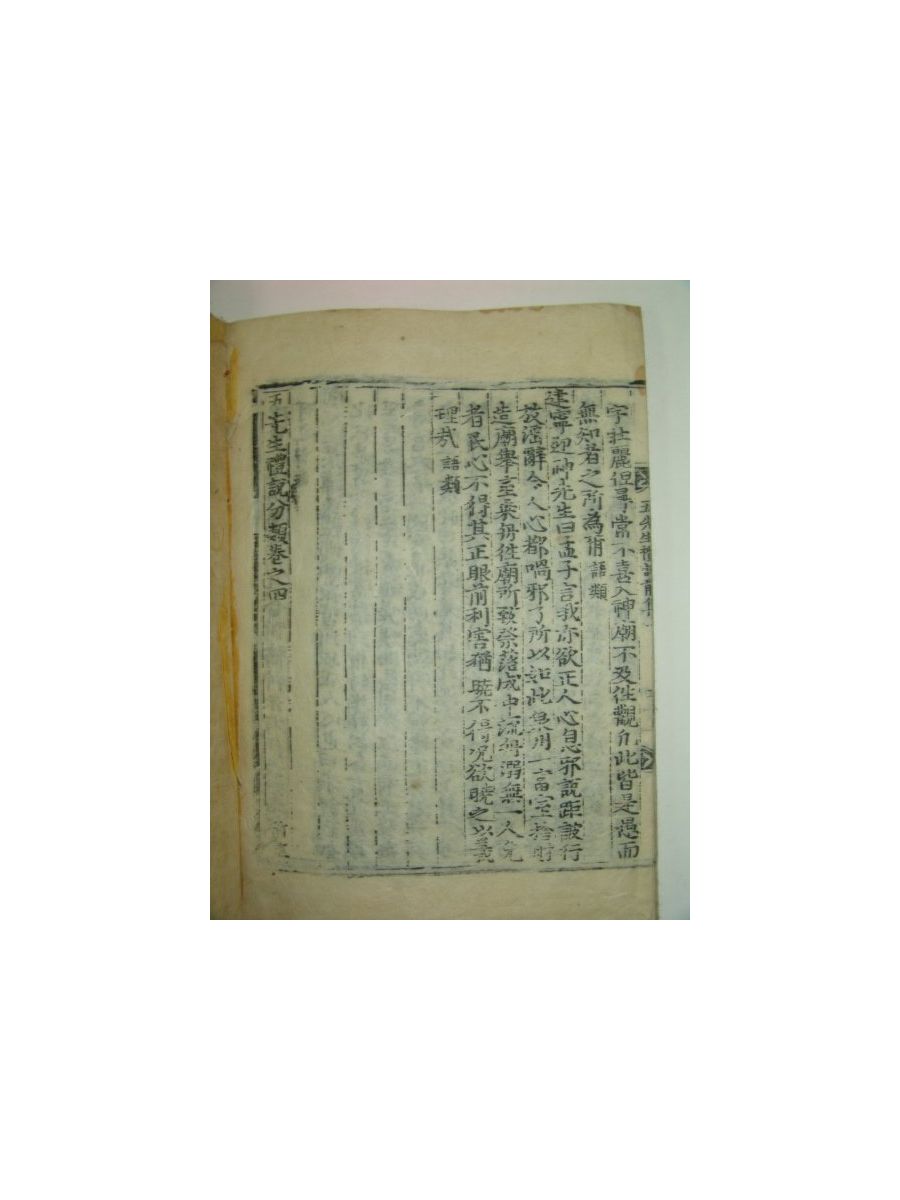 五先生禮說前集
宇壯麗但尋常不喜入神廟不及徃觀凢此皆是愚而
無知者之所為爾語類
建寧迎神先生曰孟子言我亦欲正人心息邪說距詖行
放滛辭今人心都喎邪了所以如此某州一富室捨財
造廟舉室乘舟徃廟所致祭落成中流舟溺無一人免
者民心不得其正眼前利害猶曉不得况欲曉之以義
理㢤語類
五先生禮說分類卷之四